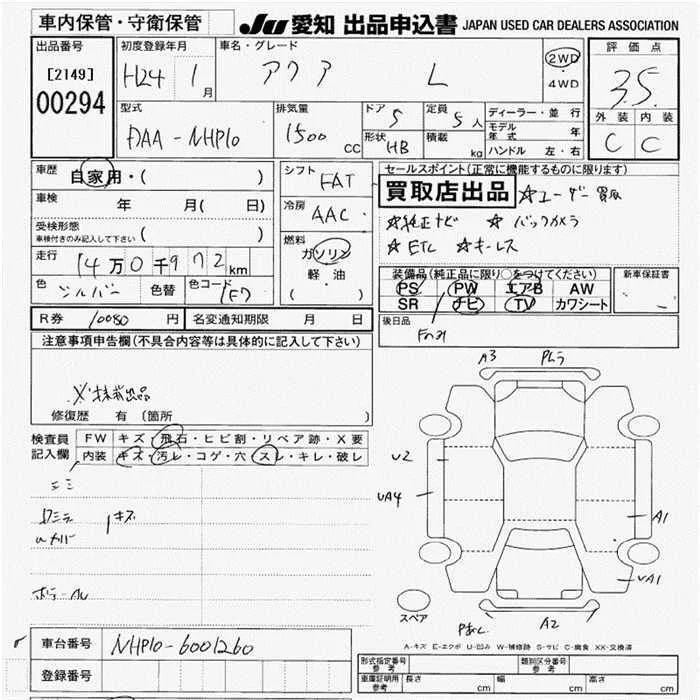 車内保管・守衛保管
JU 愛知 出品申込書 JAPAN USED CAR DEALERS ASSOCIATION
出品番号
[2149]
00294
初度登録年月
H24 1月
車名・グレード
アクア L
2WD
・
4WD
評価点
3.5
外装 内装
C C
型式
DAA-NHP10
排気量
1500 CC
ドア 5
形状 HB
定員 5人
積載 kg
ディーラー・並行
モデル年式 年
ハンドル 左・右
車歴 自家用・( )
車検 年 月( 日)
受検形態
車検付きのみ記入して下さい ( )
走行 14万0千972km
色 シルバー 色替 色コード 1F7
シフト FAT
冷房 AAC
燃料
ガソリン
軽・油
( )
セールスポイント(正常に機能するものに限ります)
買取店出品 ☆ユーザー買取
☆純正ナビ ☆バックカメラ
☆ETC ☆キーレス
装備品(純正品に限り〇をつけてください)
PS PW エアB AW
SR ナビ TV カワシート
新車保証書
後日品
R券 10080 円 名変通知期限 月 日
注意事項申告欄(不具合内容等は具体的に記入して下さい)
出品
修復歴 有 (箇所 )
検査員
記入欄
FW キズ・飛石・ヒビ割・リペア跡・X要
内装 キズ・汚レ・コゲ・穴・スレ・キレ・破レ
キズ
A3
U2
UA4
A1
UA1
A2
スペア
A-キズ E-エクボ U-凹み W-補修跡 S-サビ C-腐食 XX-交換済
車台番号 NHP10-6001260
登録番号
型式指定番号
参考
類別区分番号
参考
車庫証明用
参考
長さ cm 幅 cm 高さ cm